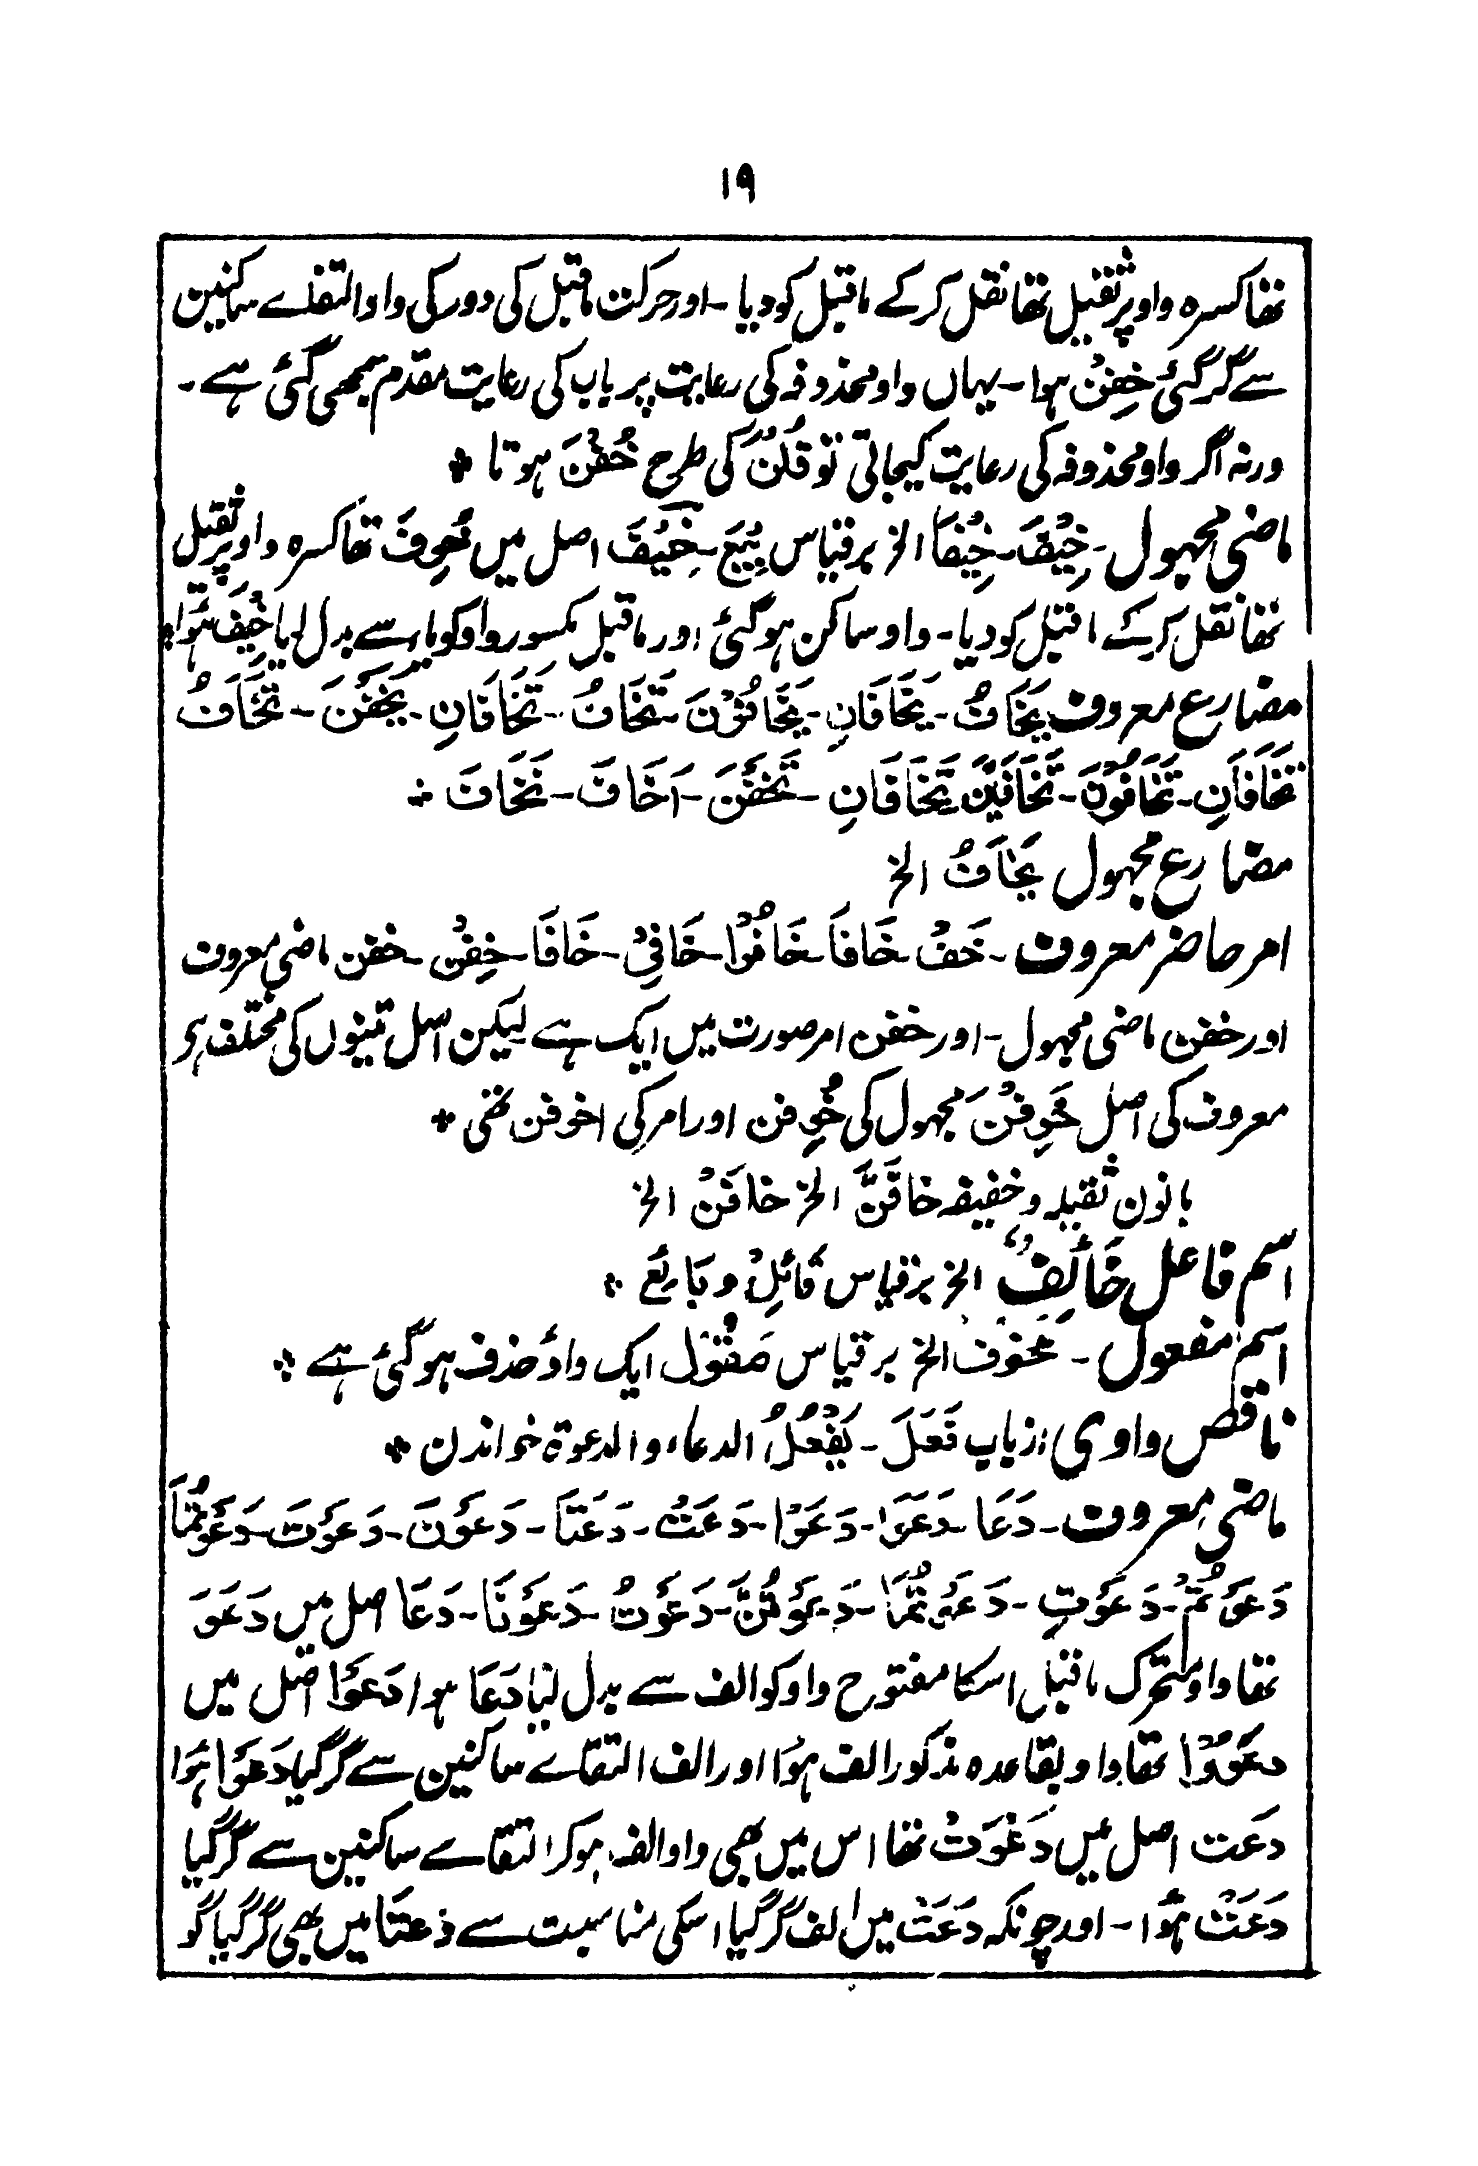 ۱۹
تھا کسرہ واو پر ثقیل تھا نقل کر کے ماقبل کو دیا - اور حرکت ماقبل کی دور کی واو التقاے ساکنین
سے گر گئی خِفْنَ ہوا - یہاں واو محذوفہ کی رعایت پر باب کی رعایت مقدم سمجھی گئی ہے -
ورنہ اگر واو محذوفہ کی رعایت کیجاتی تو قُلْنَ کی طرح خُفْنَ ہوتا ٭
ماضی مجہول - خِیْفَ - خِیْفَا الخ بر قیاس بِیْعَ - خِیْفَ اصل میں خُوِفَ تھا کسرہ واو پر ثقیل
تھا نقل کر کے ماقبل کو دیا - واو ساکن ہو گئی اور ماقبل مکسور واو کو یاء سے بدل لیا خِیْفَ ہوا ٭
مضارع معروف یَخَافُ - یَخَافَانِ - یَخَافُوْنَ - تَخَافُ - تَخَافَانِ - یَخَفْنَ - تَخَافُ
تَخَافَانِ - تَخَافُوْنَ - تَخَافِیْنَ تَخَافَانِ - تَخَفْنَ - اَخَافُ - نَخَافُ ٭
مضارع مجہول یُخَافُ الخ
امر حاضر معروف - خَفْ خَافَا خَافُوْا - خَافِیْ - خَافَا - خِفْنَ - خفن ماضی معروف
اور خفن ماضی مجہول - اور خفن امر صورت میں ایک ہے لیکن اصل تینوں کی مختلف ہے
معروف کی اصل خَوِفْنَ مجہول کی خُوِفن اور امر کی اخوفن تھی ٭
بانون ثقیلہ و خفیفہ خافَنَّ الخ خافَنْ الخ
اسم فاعل خَائِفٌ الخ بر قیاس قَائِلٌ و بَائِعٌ ٭
اسم مفعول - مخوف الخ بر قیاس مَقُوْل ایک واؤ حذف ہو گئی ہے ٭
ناقص واوی از باب فَعَلَ - یَفْعُلُ الدعاء و الدعوة خواندن ٭
ماضی معروف - دَعَا - دَعَوَا - دَعَوْا - دَعَتْ - دَعَتَا - دَعَوْنَ - دَعَوْتَ - دَعَوْتُمَا
دَعَوْتُمْ - دَعَوْتِ - دَعَوْتُمَا - دَعَوْتُنَّ - دَعَوْتُ - دَعَوْنَا - دَعَا اصل میں دَعَوَ
تھا واو متحرک ماقبل اسکا مفتوح واو کو الف سے بدل لیا دَعَا ہوا دَعَوْا اصل میں
دعَوُوْا تھا واو بقاعدہ مذکور الف ہوا اور الف التقاے ساکنین سے گر گیا دَعَوْا ہوا
دعَت اصل میں دَعَوَتْ تھا اس میں بھی واو الف ہو کر التقاے ساکنین سے گر گیا
دَعَتْ ہوا - اور چونکہ دَعَتْ میں الف گر گیا اسکی مناسبت سے دَعَتَا میں بھی گر گیا گو